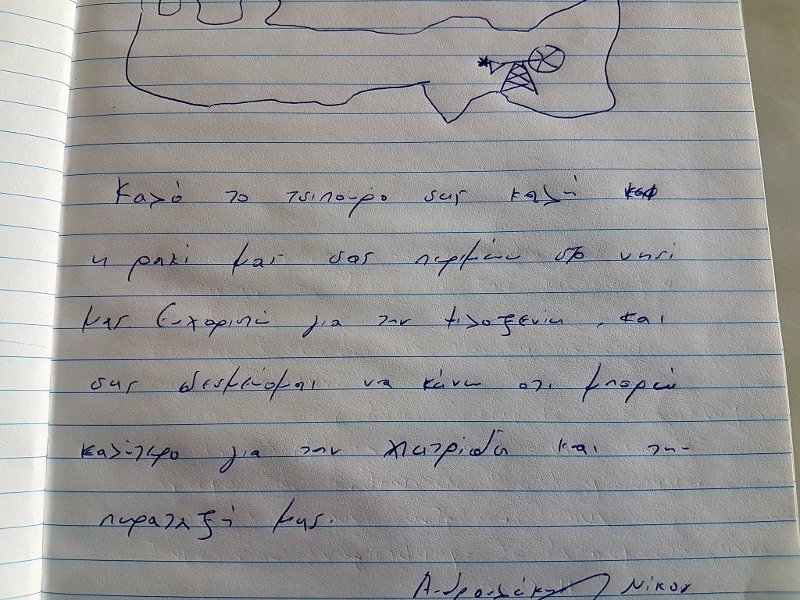 Καλό το τσιπουρο σας καλή
η ρακί μας σας περιμένω στο νησί
μας Ευχαριστώ για την φιλοξενία, και
σας δεσμεύομαι να κάνω οτι μπορώ
καλύτερο για την πατρίδα και την
παραταξή μας.
Ανδρουλάκης Νίκος